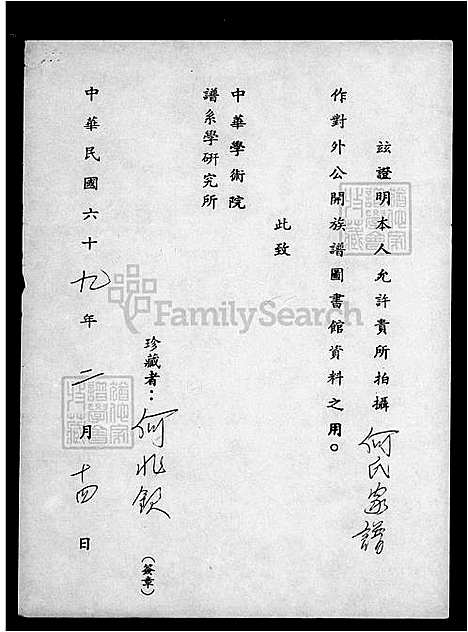 茲證明本人允許貴所拍攝何氏家譜
作對外公開族譜圖書館資料之用。
此致
中華學術院
譜系學研究所
珍藏者：何兆欽（簽章）
中華民國六十九年二月十四日
FamilySearch